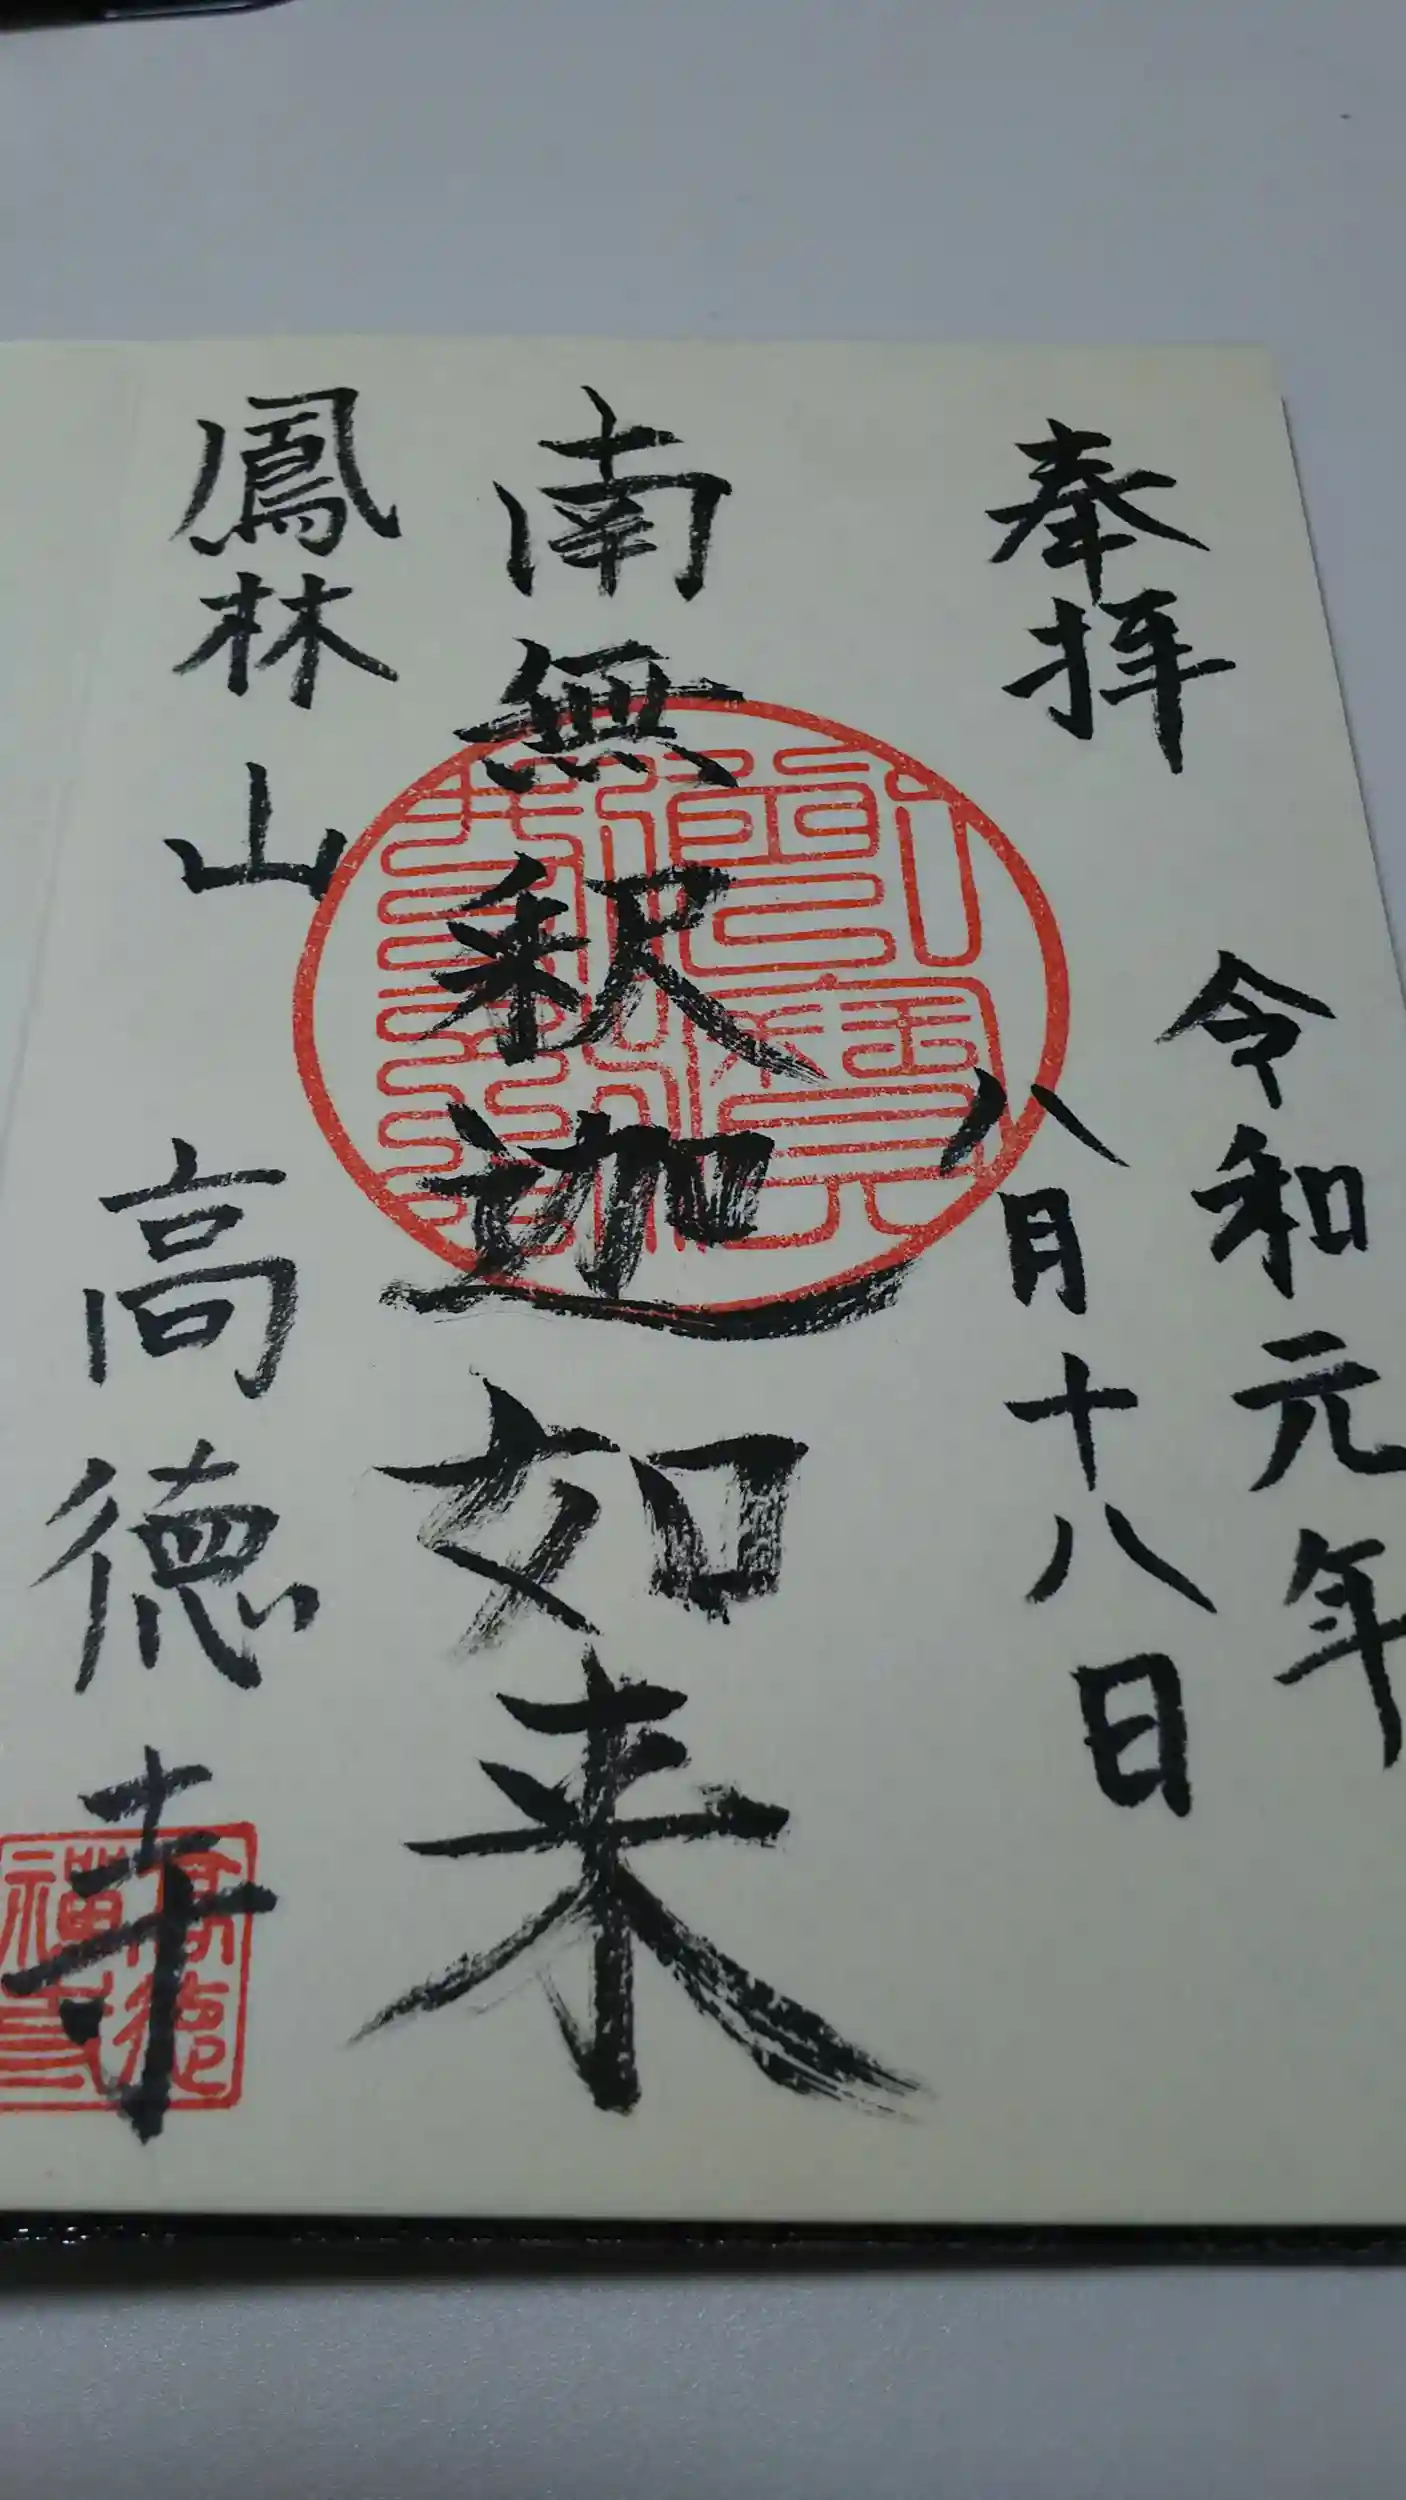 奉拝
令和元年
八月十八日
南無釈迦如来
鳳林山
高徳寺
高徳
禅寺